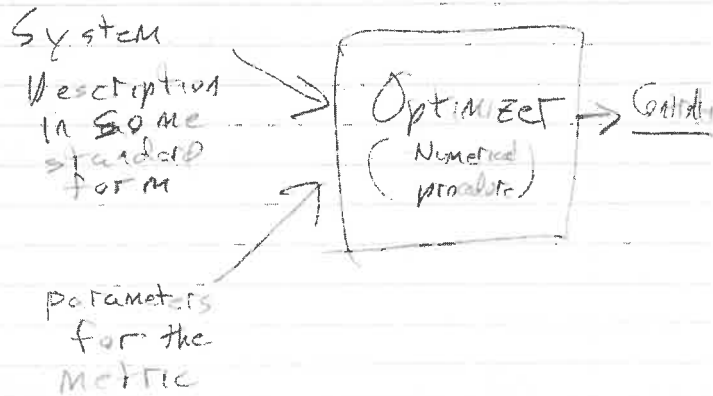 System
Description
in some
standard
form
Optimizer
(Numerical
procedure)
parameters
for the
metric